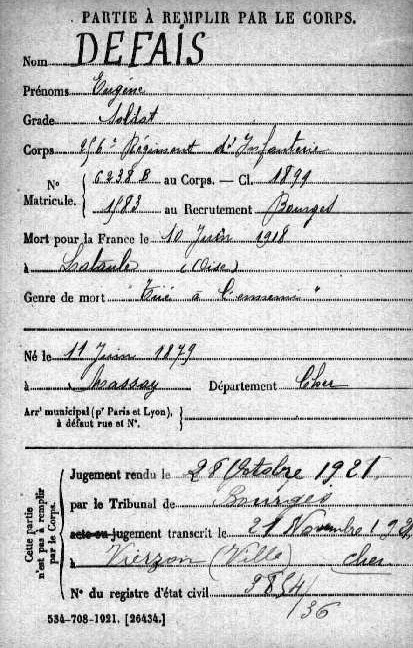 PARTIE À REMPLIR PAR LE CORPS.
Nom DEFAIS
Prénoms Eugène
Grade Soldat
Corps 256e Régiment d'Infanterie
N° Matricule. { 6238 B au Corps. — Cl. 1899
1583 au Recrutement Bourges
Mort pour la France le 10 Juin 1918
à Lataule (Oise)
Genre de mort "Tué à l'ennemi"
Né le 11 Juin 1879
à Massay Département Cher
Arrt municipal (pr Paris et Lyon), à défaut rue et N°. }
Cette partie n'est pas à remplir par le Corps.
Jugement rendu le 28 Octobre 1921
par le Tribunal de Bourges
acte ou jugement transcrit le 21 Novembre 192
à Vierzon (Ville) Cher
N° du registre d'état civil 3854/36
534-708-1921. [26434.]